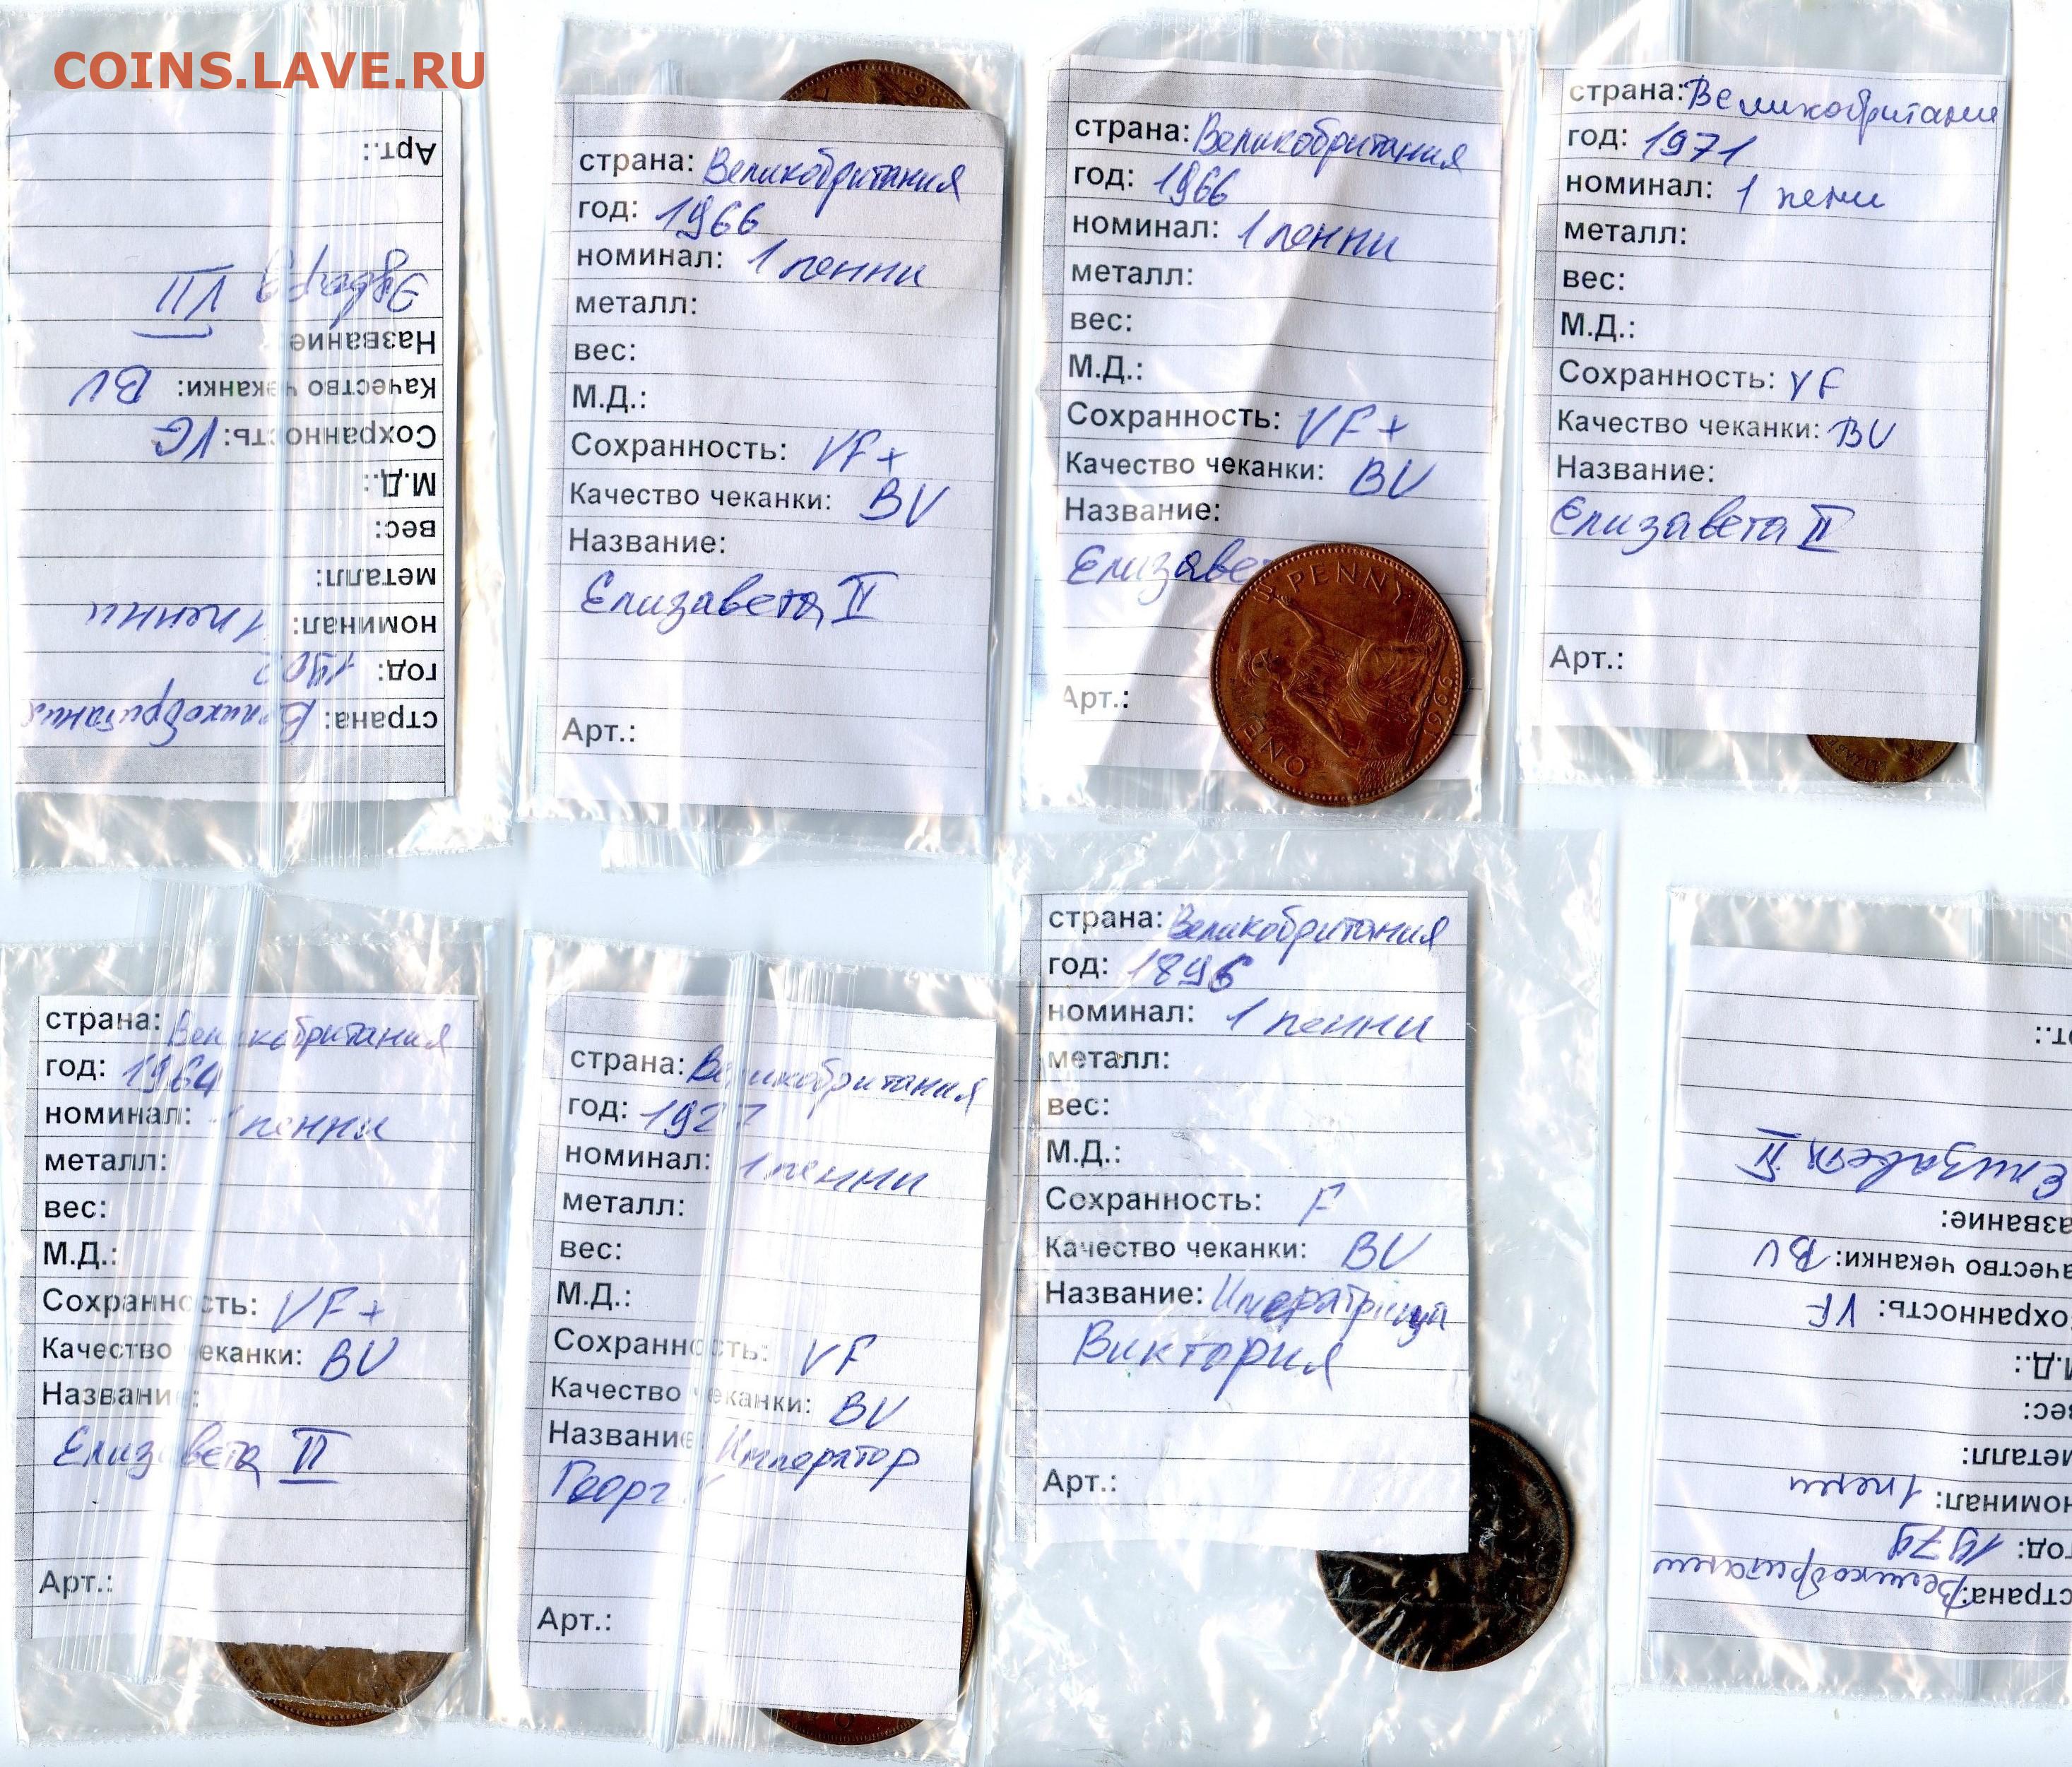 COINS.LAVE.RU
страна: Великобритания
год: 1902
номинал: 1 пенни
металл:
вес:
М.Д.:
Сохранность: VG
Качество чеканки: BU
Название:
Эдвард VII
Арт.:
страна: Великобритания
год: 1966
номинал: 1 пенни
металл:
вес:
М.Д.:
Сохранность: VF+
Качество чеканки: BU
Название:
Елизавета II
Арт.:
страна: Великобритания
год: 1966
номинал: 1 пенни
металл:
вес:
М.Д.:
Сохранность: VF+
Качество чеканки: BU
Название:
Елизаве
Арт.:
ONE PENNY
1966
страна: Великобритания
год: 1971
номинал: 1 пени
металл:
вес:
М.Д.:
Сохранность: VF
Качество чеканки: BU
Название:
Елизавета II
Арт.:
страна: Великобритания
год: 1964
номинал: 1 пенни
металл:
вес:
М.Д.:
Сохранность: VF+
Качество чеканки: BU
Название:
Елизавета II
Арт.:
страна: Великобритания
год: 1927
номинал: 1 пенни
металл:
вес:
М.Д.:
Сохранность: VF
Качество чеканки: BU
Название: Император
Георг V
Арт.:
страна: Великобритания
год: 1896
номинал: 1 пенни
металл:
вес:
М.Д.:
Сохранность: F
Качество чеканки: BU
Название: Императрица
Виктория
Арт.:
страна: Великобритании
год: 1979
номинал: 1 пени
металл:
вес:
М.Д.:
охранность: VF
ачество чеканки: BU
азвание:
Елизавета II
рт.: